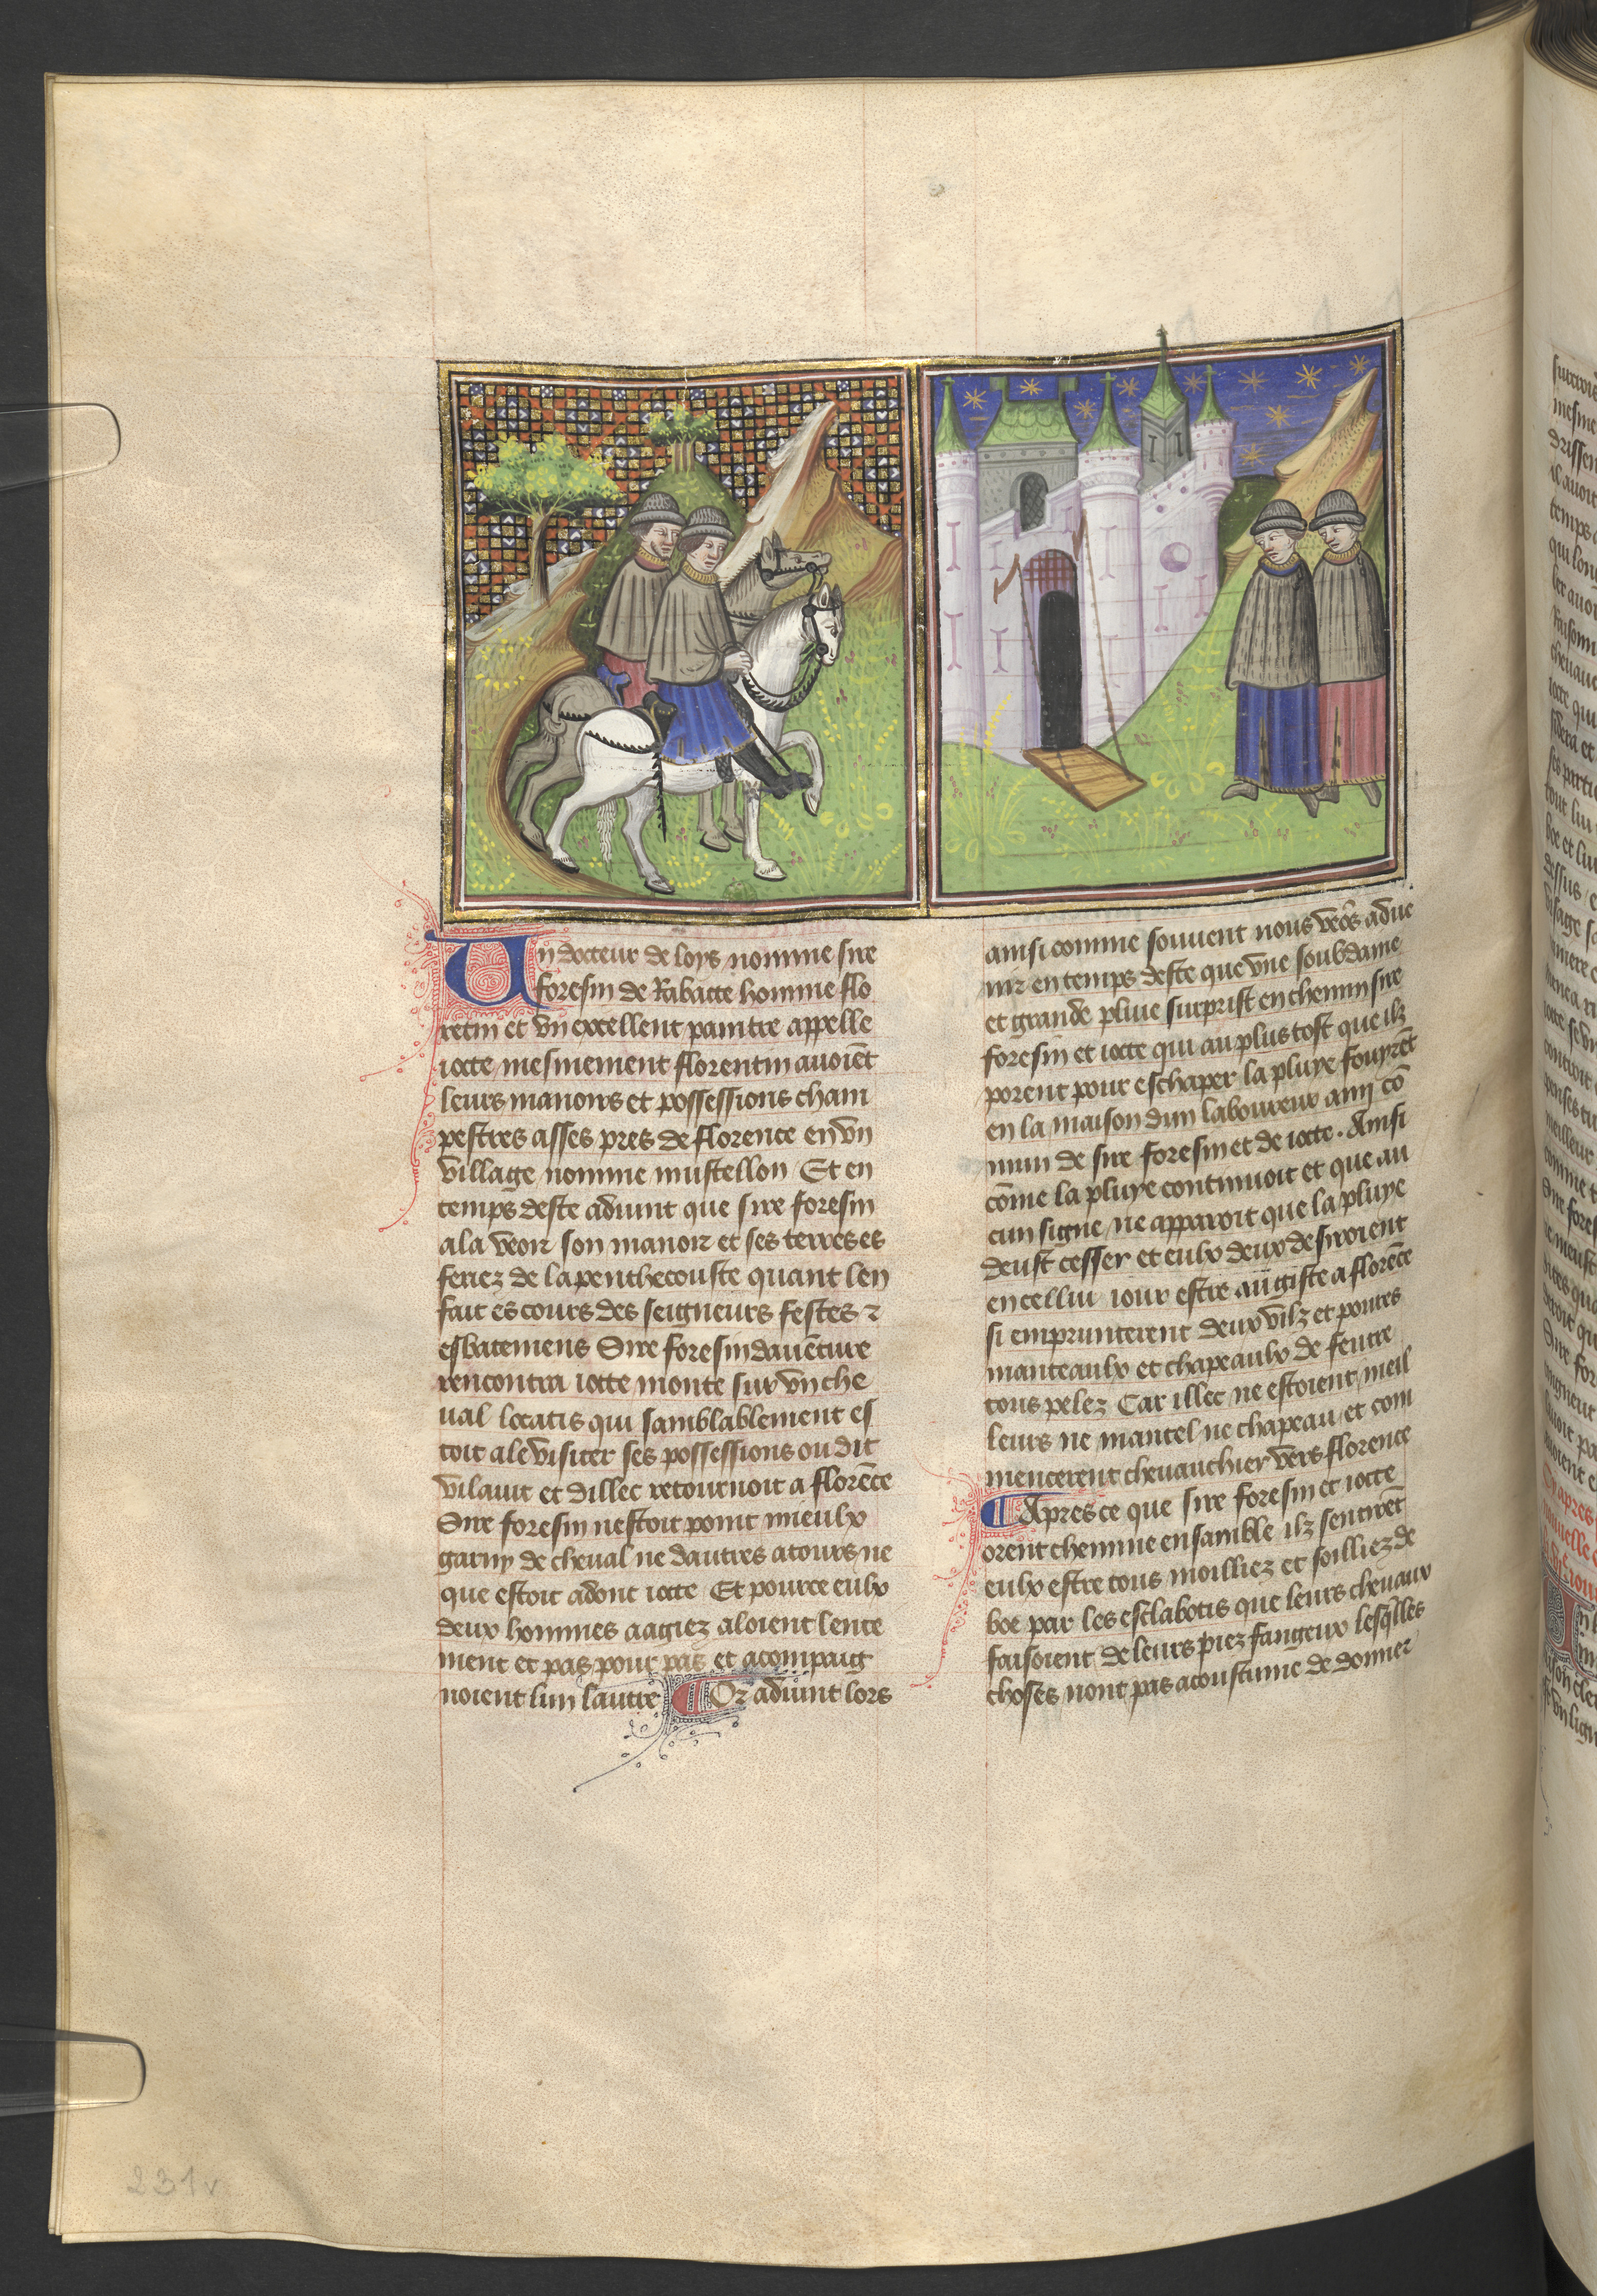 Un docteur de loys nomme sire
foresin de Rabatte homme flo
retin et vn excellent paintre appelle
iotte mesmement florentin auoiēt
leurs manoirs et possessions cham
pestres asses pres de florence en vn
village nomme mustellon Et en
temps deste aduint que sire foresin
ala veoir son manoir et ses terres es
feriez de la penthecouste quant len
fait es cours des seigneurs festes ⁊
esbatemens Sire foresin dauēture
rencontra iotte monte sur vn che
ual locatis qui samblablement es
toit ale visiter ses possessions ou dit
vilaut et dillec retournoit a florēce
Sire foresin nestoit point mieulx
garny de cheual ne dautres atours ne
que estoit adont iotte Et pource eulx
deux hommes aagiez aloient lente
ment et pas pour pas et acompaig
noient lun lautre Or aduint lors
ainsi comme souuent nous veōs adue
nir en temps deste que vne soubdaine
et grande pluie surprist en chemin sire
foresin et iotte qui au plus tost que ilz
porent pour eschaper la pluye fouyrēt
en la maison dun laboureur amj cō
mun de sire foresin et de iotte. Ainsi
cōme la pluye continuoit et que au
cun signe ne apparoit que la pluye
deust cesser et eulx deux desiroient
en cellui iour estre au giste a florēce
si emprunterent deux vilz et poures
manteaulx et chapeaulx de feutre
tous pelez Car illec ne estoient meil
leurs ne mantel ne chapeau et com
mencerent cheuauchier vers florence
Apres ce que sire foresin et iotte
orent chemine ensamble ilz sentirēt
eulx estre tous moilliez et soilliez de
boe par les esclabotis que leurs cheuaux
faisoient de leurs piez fangeux lesq̄lles
choses nont pas acoustume de donner
231v